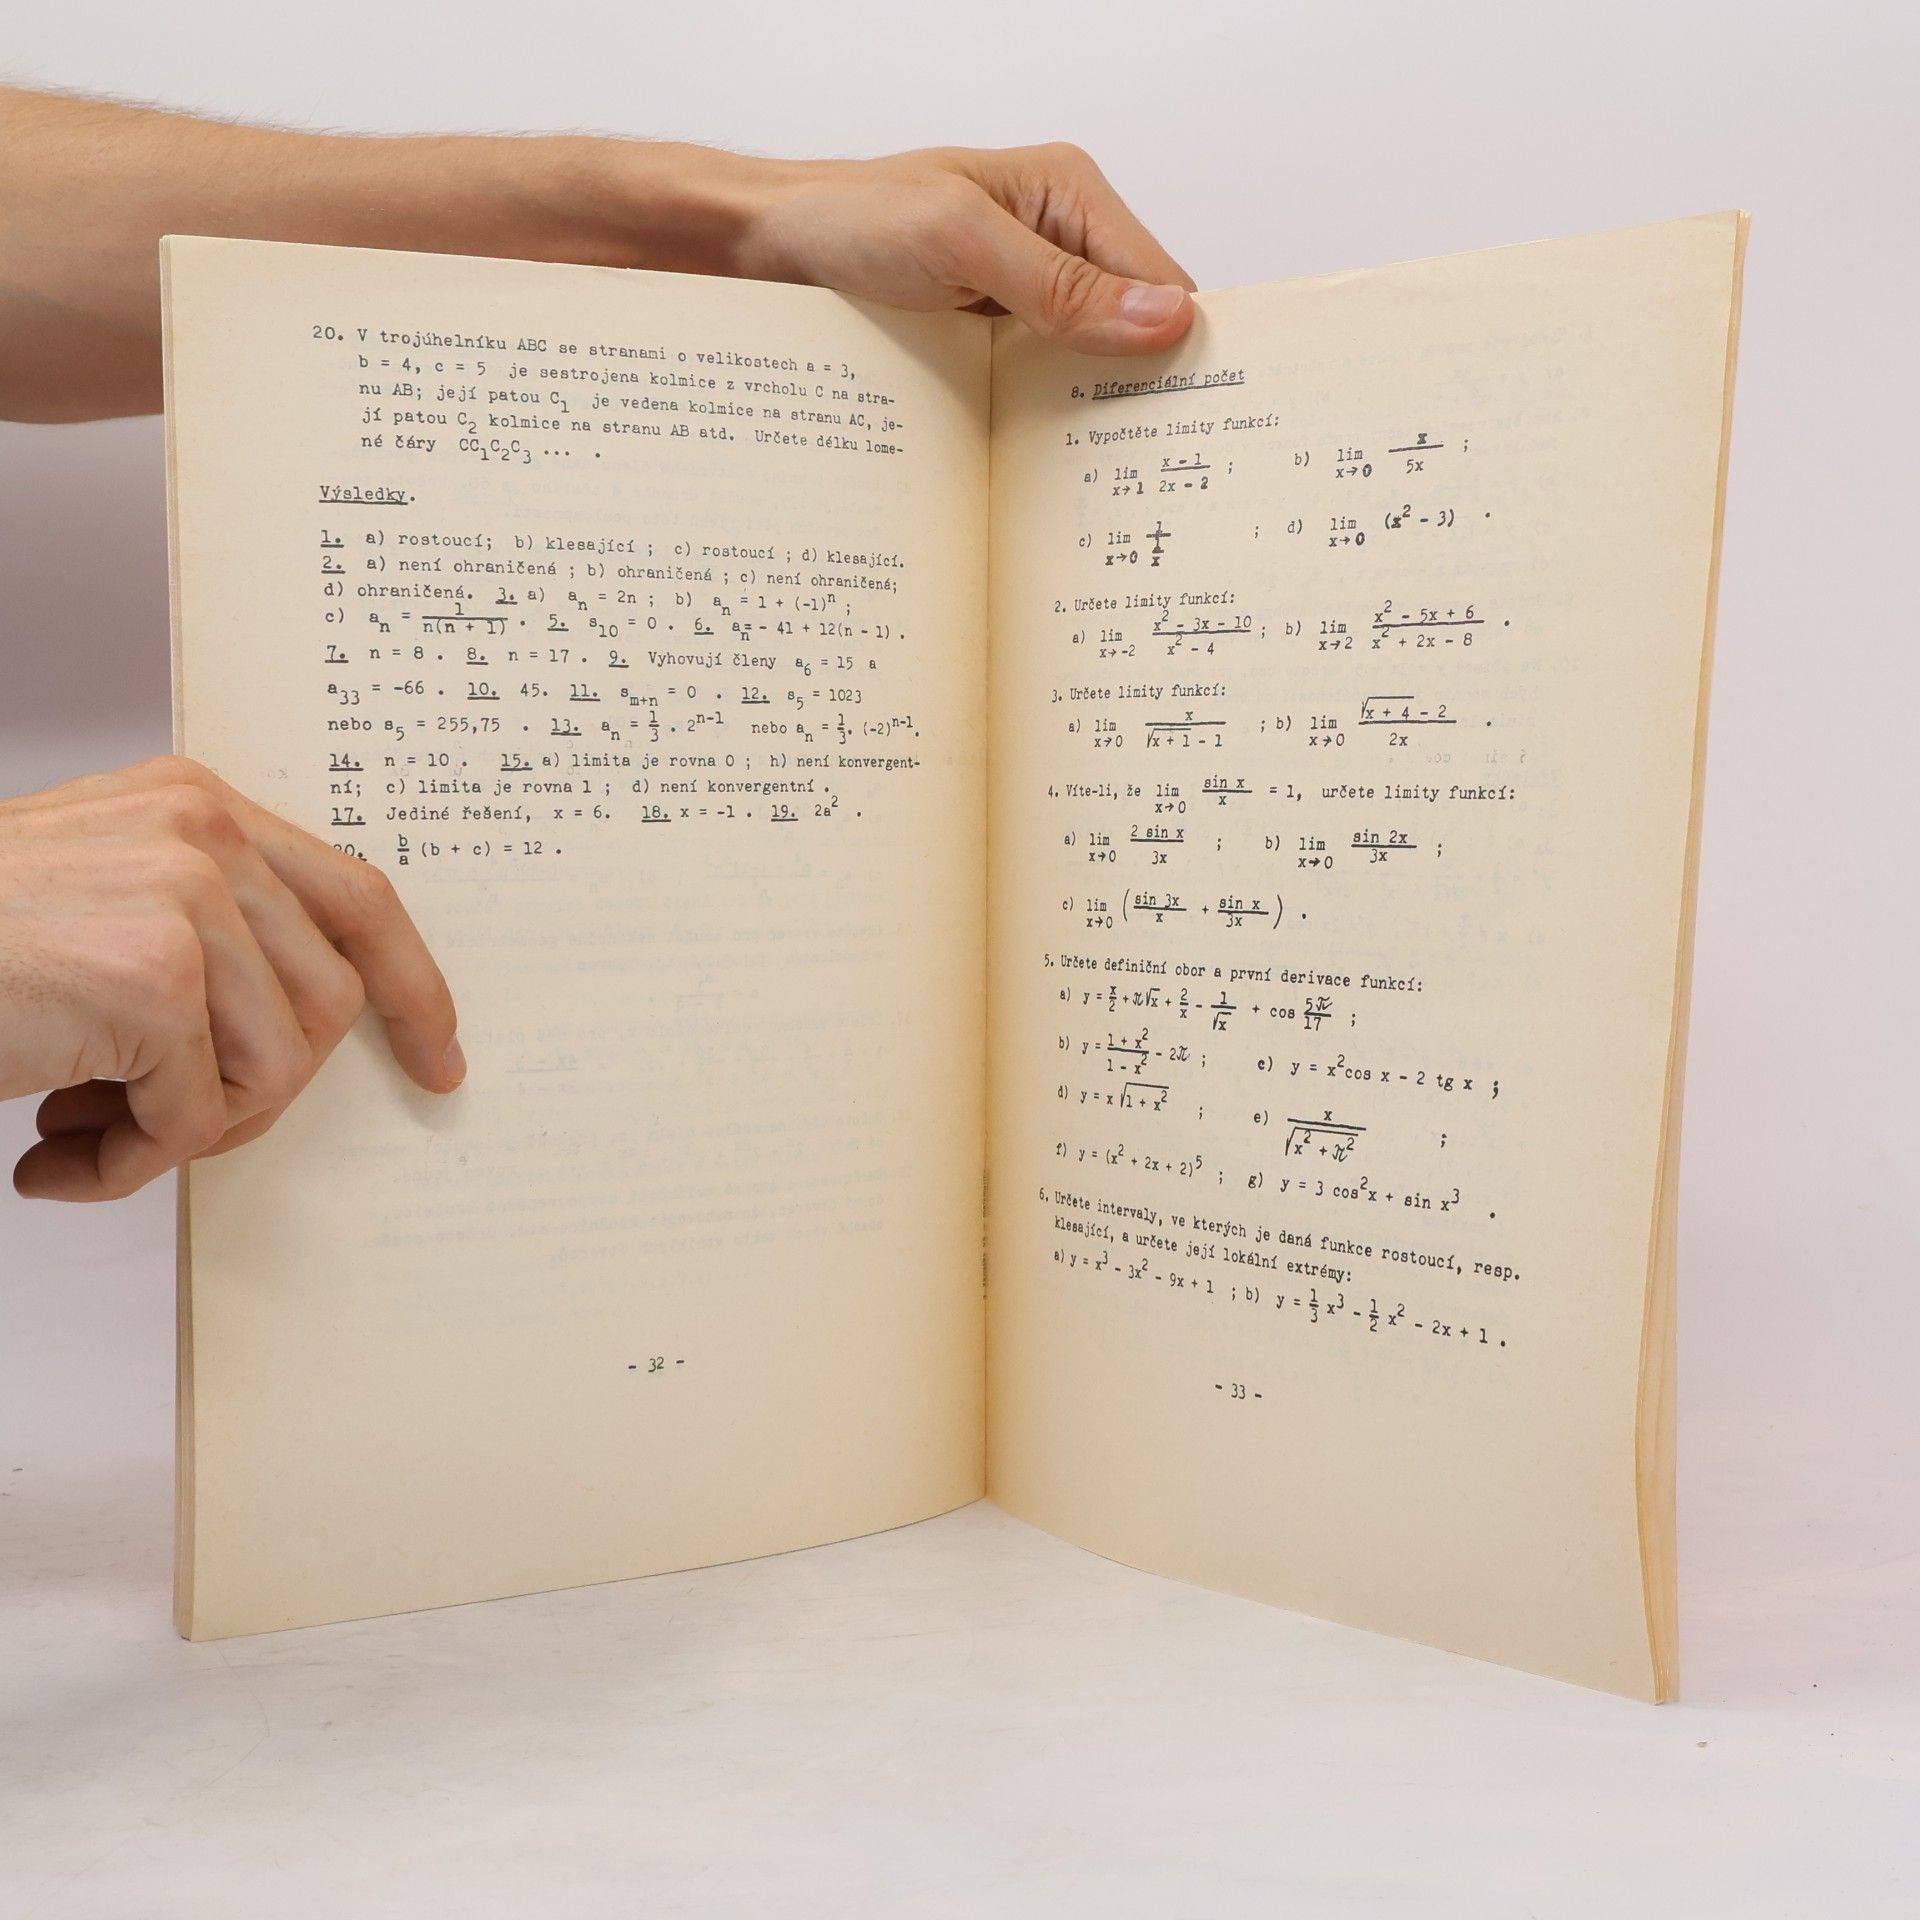 20. V trojúhelníku ABC se stranami o velikostech a = 3,
b = 4, c = 5 je sestrojena kolmice z vrcholu C na stra-
nu AB; její patou C₁ je vedena kolmice na stranu AC, je-
jí patou C₂ kolmice na stranu AB atd. Určete délku lome-
né čáry CC₁C₂C₃ ... .
Výsledky.
1. a) rostoucí; b) klesající ; c) rostoucí ; d) klesající.
2. a) není ohraničená ; b) ohraničená ; c) není ohraničená;
d) ohraničená. 3. a) aₙ = 2n ; b) aₙ = 1 + (-1)ⁿ ;
c) aₙ = 1/(n(n + 1)) . 5. s₁₀ = 0 . 6. aₙ = - 41 + 12(n - 1) .
7. n = 8 . 8. n = 17 . 9. Vyhovují členy a₆ = 15 a
a₃₃ = -66 . 10. 45. 11. sₘ₊ₙ = 0 . 12. s₅ = 1023
nebo s₅ = 255,75 . 13. aₙ = 1/3 . 2ⁿ⁻¹ nebo aₙ = 1/3 . (-2)ⁿ⁻¹.
14. n = 10 . 15. a) limita je rovna 0 ; h) není konvergent-
ní; c) limita je rovna 1 ; d) není konvergentní .
17. Jediné řešení, x = 6. 18. x = -1 . 19. 2a² .
20. b/a (b + c) = 12 .
- 32 -
8. Diferenciální počet
1. Vypočtěte limity funkcí:
a) lim x→1 (x - 1)/(2x - 2) ; b) lim x→0 x/(5x) ;
c) lim x→0 1/(1/x) ; d) lim x→0 (x² - 3) .
2. Určete limity funkcí:
a) lim x→-2 (x² - 3x - 10)/(x² - 4) ; b) lim x→2 (x² - 5x + 6)/(x² + 2x - 8) .
3. Určete limity funkcí:
a) lim x→0 x/(√(x + 1) - 1) ; b) lim x→0 (√(x + 4) - 2)/(2x) .
4. Víte-li, že lim x→0 (sin x)/x = 1, určete limity funkcí:
a) lim x→0 (2 sin x)/(3x) ; b) lim x→0 (sin 2x)/(3x) ;
c) lim x→0 ((sin 3x)/x + (sin x)/(3x)) .
5. Určete definiční obor a první derivace funkcí:
a) y = x/2 + π√x + 2/x - 1/√x + cos 5π/17 ;
b) y = (1 + x²)/(1 - x²) - 2π ; c) y = x²cos x - 2 tg x ;
d) y = x √(1 + x²) ; e) x/√(x² + π²) ;
f) y = (x² + 2x + 2)⁵ ; g) y = 3 cos²x + sin x³ .
6. Určete intervaly, ve kterých je daná funkce rostoucí, resp.
klesající, a určete její lokální extrémy:
a) y = x³ - 3x² - 9x + 1 ; b) y = 1/3 x³ - 1/2 x² - 2x + 1 .
- 33 -